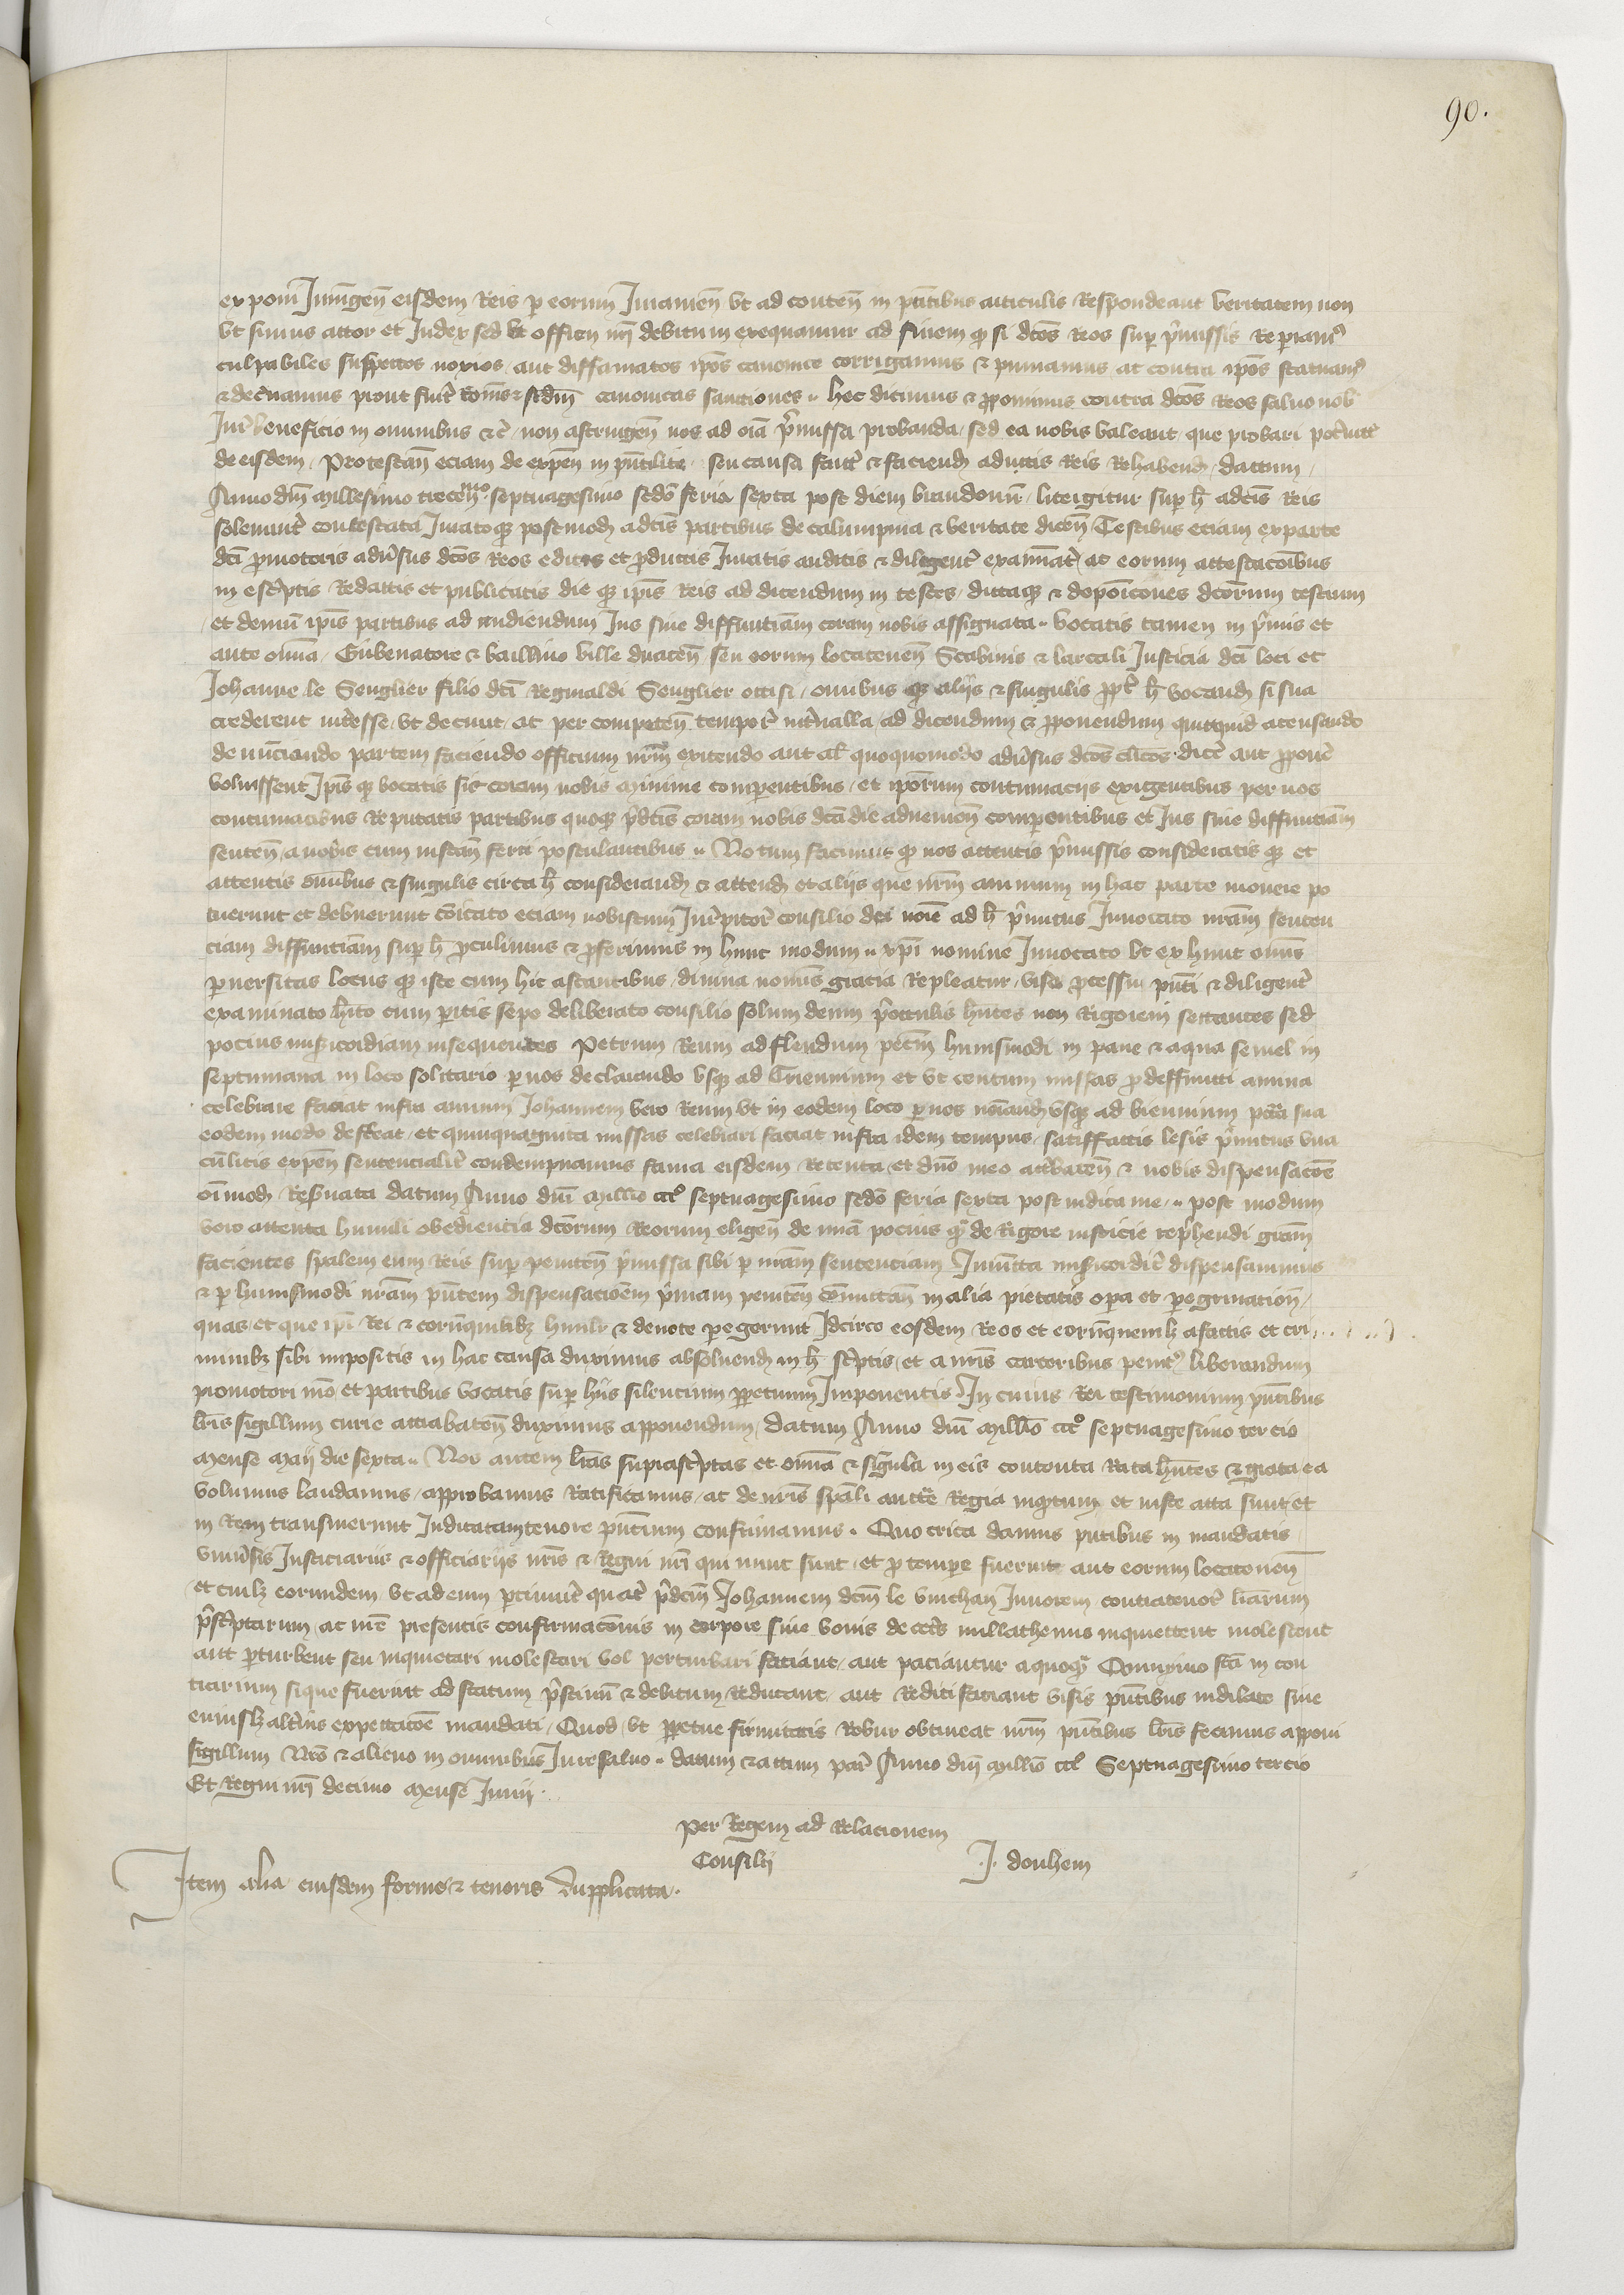 90.
ex poni Iniungen̄ eisdem Reis per eorum Iuramen̄ vt ad conten̄ in p̄ntibus articulis Respondeant veritatem non
vt simus actor et Iudex sed vt officii nr̄i debitum exequamur ad finem qd si dc̄os Reos sup p̄missis Reperiam9
culpabiles suspectos noxios aut diffamatos ip̄os canonice corrigamus & puniamus ac contra ip̄os statuam9
& decernamus prout fuer̄ scdm̄ canonicas sanctiones hec dicimus & proponimus contra dc̄os Reos saluo nob
Iur̄ beneficio in omnibus &c̄ non astringen̄ nos ad oīa p̄missa probanda sed ea nobis valeant que probari poterunt
de eisdem Protestan̄ eciam de expen̄ in p̄nti lite seu causa fact̄ & faciend a dictis Reis Rehabend datum
Anno dn̄i Millesimo trecen̄mo septuagesimo scd̄o feria sexta post diem brandonū lite igitur sup h̄ a dc̄is Reis
solenniter contestata Iurato qz postmod a dc̄is partibus de calumpnia & veritate dicen̄ Testibus eciam ex parte
dc̄i promotoris aduersus dc̄os Reos editis et productis Iuratis auditis & diligenter examinat̄ ac eorum attestacōibus
in escriptis Redactis et publicatis die qz ip̄is Reis ad dicendum in testes dictaqz & deposic̄ones dc̄orum testium
et demū ip̄is partibus ad audiendum Ius siue diffinitiuam coram nobis assignata vocatis tamen in p̄mis et
ante omnia Gubernatore & bailliuo ville duacen̄ seu eorum locatenen̄ Scabinis & laicali Iusticia dc̄i loci et
Iohanne le Senglier filio dc̄i Reginaldi Senglier occisi omnibus qz aliis & singulis propt̄ h̄ vocand si sua
crederent interesse vt decuit ac per competen̄ tempor̄ interualla ad dicendum & proponendum quicquid accusando
denunciando partem faciendo officium nrm̄ excitando aut al̄ quoquomodo aduersus dc̄os cl̄icos dicer̄ aut proponer̄
voluissent Ip̄is qz vocatis sic coram nobis minime comparentibus et ip̄orum contumaciis exigentibus per nos
contumacibus Reputatis partibus quoqz p̄dc̄is coram nobis dc̄a die aduenien̄ comparentibus et Ius siue diffinitiuam
senten̄ a nobis cum instan̄ ferri postulantibus Notum facimus qd nos attentis p̄missis consideratis qz et
attentis omnibus & singulis circa h̄ considerand & attendend et aliis que nrm̄ animum in hac parte mouere po
tuerunt et debuerunt cōicato eciam nobiscum Iur̄ peritor̄ consilio dei noīe ad h̄ p̄mitus Inuocato nrām senten
ciam diffinitiuam sup h̄ protulimus & proferimus in hunc modum xpi nomine Inuocato vt ex hinc omīs
peruersitas locus qz iste cum hic astantibus diuina nominis gracia Repleatur viso processu p̄nti & diligenter
examinato hīto cum peritis sepe deliberato consilio solum deum p̄ oculis hn̄tes non Rigorem sectantes sed
pocius misericordiam insequentes Petrum Reum ad flendum pctm̄ huiusmodi in pane & aqua semel in
septimana in loco solitario per nos declarando vsqz ad Triennium et vt centum missas pro deffuncti anima
celebrare faciat infra annum Iohannem vero Reum vt in eodem loco per nos noīand vsqz ad biennium pctā sua
eodem modo defleat et quinquaginta missas celebrari faciat infra idem tempus satisfactis lesis p̄mitus vna
cū litis expen̄ sentencialiter condempnamus fama eisdem Retenta et dn̄o meo attrebaten̄ & nobis dispensacōe
oīmod Reseruata datum Anno dn̄i Millio ccc° septuagesimo scd̄o feria sexta post iudica me post modum
vero attenta humili obediencia dc̄orum Reorum eligen̄ de mīa pocius qz de Rigore iusticie reprehendi grām
facientes spālem cum Reis sup peniten̄ p̄missa sibi per nrām sentenciam Iniuncta misericorditer dispensauimus
& per huiusmodi nrām pn̄tem dispensacionem p̄mam peniten̄ cōmutan̄ in alia pietatis opera et peregrination̄
quas et que ip̄i Rei & eorū quilibz humilr & deuote peregerunt Idcirco eosdem Reos et eorū quemlz a factis et cri
minibz sibi impositis in hac causa duximus absoluend in h̄ scriptis et a nrīs carceribus penit9 liberandum
promotori nrō et partibus vocatis sup hiis silencium perpetuum Imponentis In cuius Rei testimonium pn̄tibus
lrīs sigillum curie attrebaten̄ duximus apponendum datum Anno dn̄i Millio ccc° septuagesimo tercio
Mense Maii die sexta Nos autem lrās suprascriptas et omīa & singula in eis contenta Rata hn̄tes & grata ea
volumus laudamus approbamus Ratificamus ac de nrīs spāli auctte Regia inquantum et iuste acta sunt et
in Rem transierunt Iudicatam tenore pn̄tium confirmamus Quo circa damus pn̄tibus in mandatis
vniuersis Iusticiariis & officiariis nrīs & Regni nrī qui nunc sunt et pro tempore fuerint aut eorum locatenen̄
et cuilz eorundem vt ad eum pertinuerit quat̄ p̄dcm̄ Iohannem dcm̄ le vinchan Iuniorem contra tenor̄ lrārum
p̄scriptarum ac nrē presentis confirmacōnis in corpore siue bonis de ceto nullathenus inquietent molestent
aut perturbent seu inquietari molestari vel perturbari faciant aut paciantur a quoqz Quinymo fcā in con
trarium si que fuerint ad statum p̄stinū & debitum Reducant aut Reduci faciant visis pn̄tibus indilate siue
cuiuslz alterius expectacōe mandati Quod vt perpetue firmitatis Robur obtineat nrm̄ pn̄tibus lrīs fecimus apponi
sigillum Nrō & alieno in omnibus Iure saluo datum & actum par̄ Anno dn̄i Millio ccc° Septuagesimo tercio
Et Regni nrī decimo Mense Iunii
per Regem ad Relacionem
Consilii J. douhem
Item alia eiusdem forme & tenoris dupplicata.